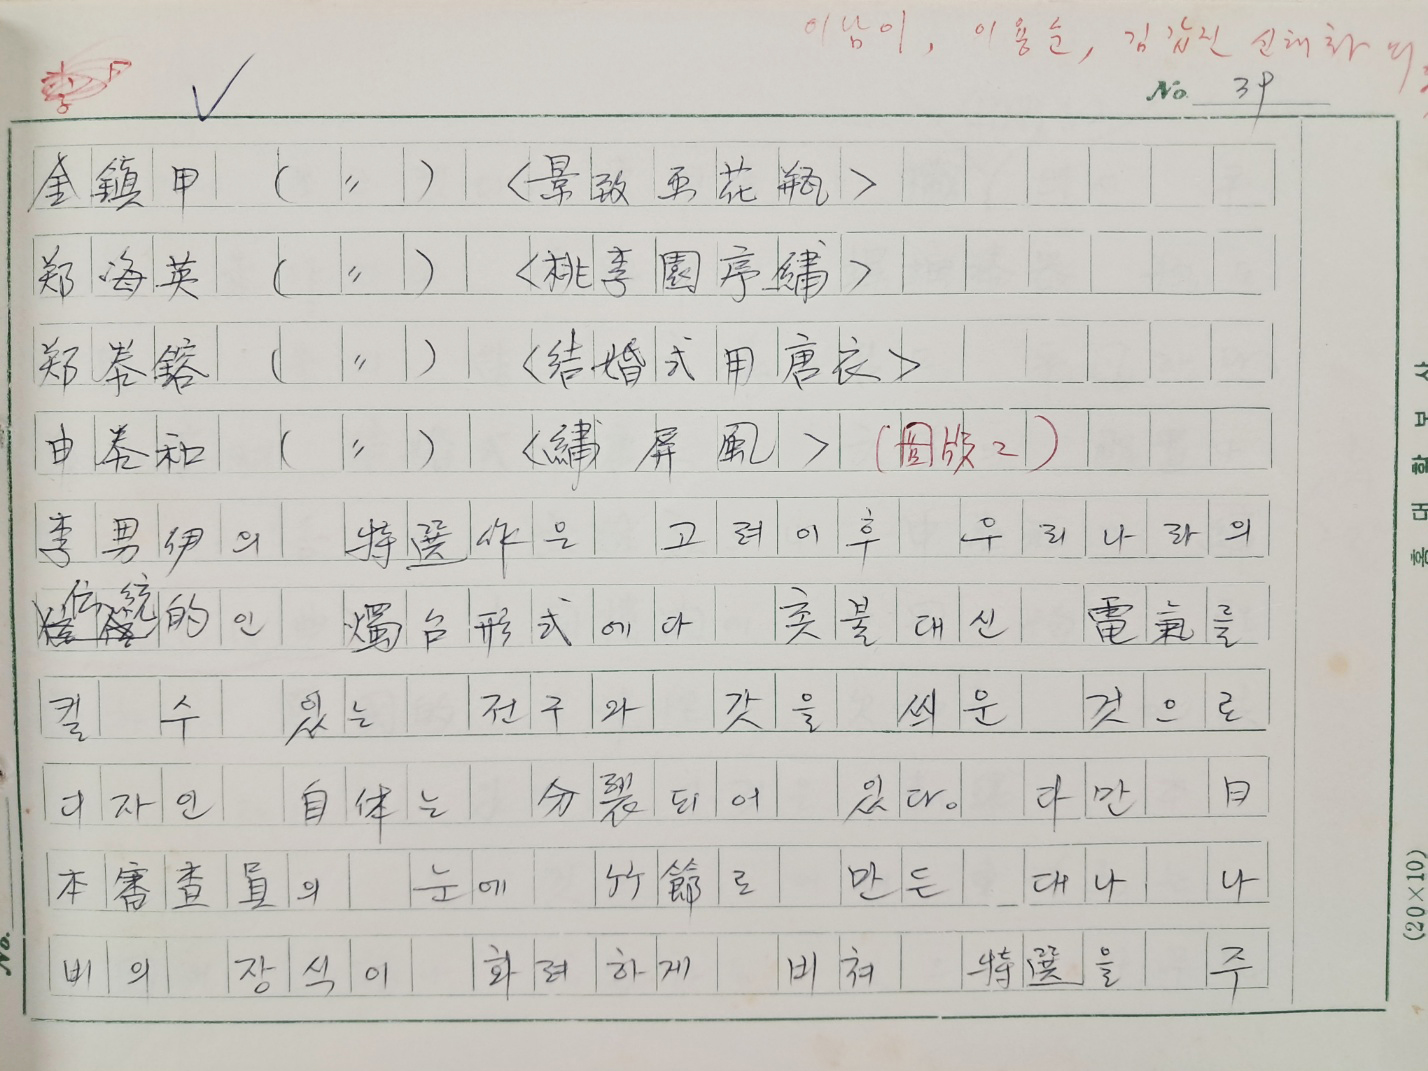 이남이, 이용순, 김갑진 신태화
No. 39
金鎭甲 ( 〃 ) <景致画花瓶>
郑海英 ( 〃 ) <桃李園序繡>
郑泰鎔 ( 〃 ) <結婚式用唐衣>
申泰和 ( 〃 ) <繡屏風> (圖版2)
李男伊의 特選作은 고려이후 우리나라의
傳統的인 燭台形式에다 촛불대신 電氣를
킬 수 있는 전구와 갓을 씌운 것으로
디자인 自体는 分裂되어 있다。 다만 日
本審査員의 눈에 竹節로 만든 대나 나
비의 장식이 화려하게 비쳐 特選을 주
홍대학보사
(20×10)
No.